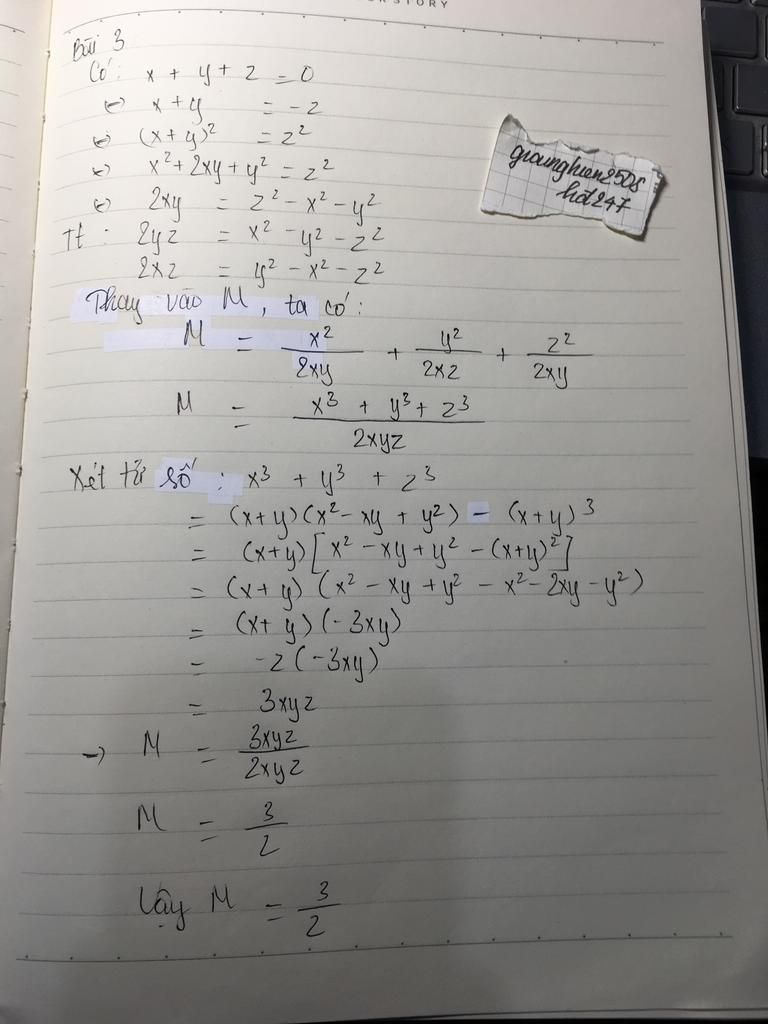 STORY
Bài 3
Có: x + y + z = 0
⇔ x + y = -z
⇔ (x + y)² = z²
⇔ x² + 2xy + y² = z²
⇔ 2xy = z² - x² - y²
Tt: 2yz = x² - y² - z²
2xz = y² - x² - z²
Thay vào M, ta có:
M = x²/2xy + y²/2xz + z²/2xy
M = x³ + y³ + z³/2xyz
Xét tử số: x³ + y³ + z³
= (x+y)(x² - xy + y²) - (x+y)³
= (x+y)[x² - xy + y² - (x+y)²]
= (x+y)(x² - xy + y² - x² - 2xy - y²)
= (x+y)(-3xy)
= -z(-3xy)
= 3xyz
→ M = 3xyz/2xyz
M = 3/2
Vậy M = 3/2
hđ247